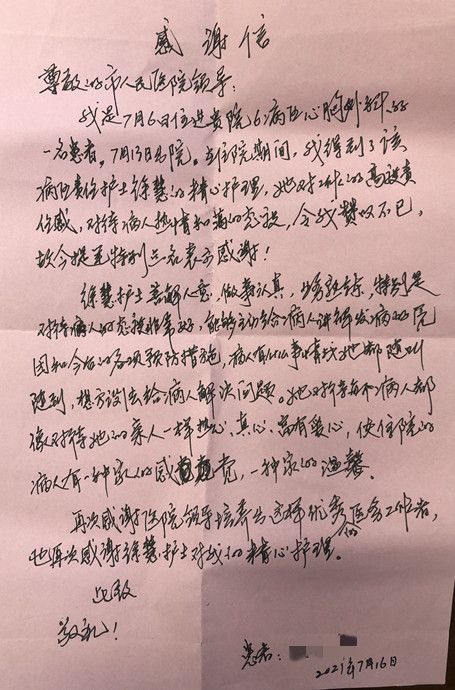 感谢信
尊敬的市人民医院领导：
我是7月6日住进贵院6病区心胸外科的
一名患者。7月13日出院。在住院期间，我得到了该
病区责任护士徐慧的精心护理，她对工作的高度责
任感，对待病人热情和蔼的态度，令我赞叹不已，
故今提笔特别点名表示感谢！
徐慧护士善解人意，做事认真，业务熟练，特别是
对待病人的态度非常好，能够主动给病人讲解发病的原
因和今后的各项预防措施，病人有什么事情找她都随叫
随到，想方设法给病人解决问题。她对待每个病人都
像对待她的亲人一样热心、真心、富有爱心，使住院的
病人有一种家人的感觉，一种家的温馨。
再次感谢医院领导培养出这样优秀的医务工作者，
也再次感谢徐慧护士对我的精心护理。
此致
敬礼！
患者：
2021年7月16日